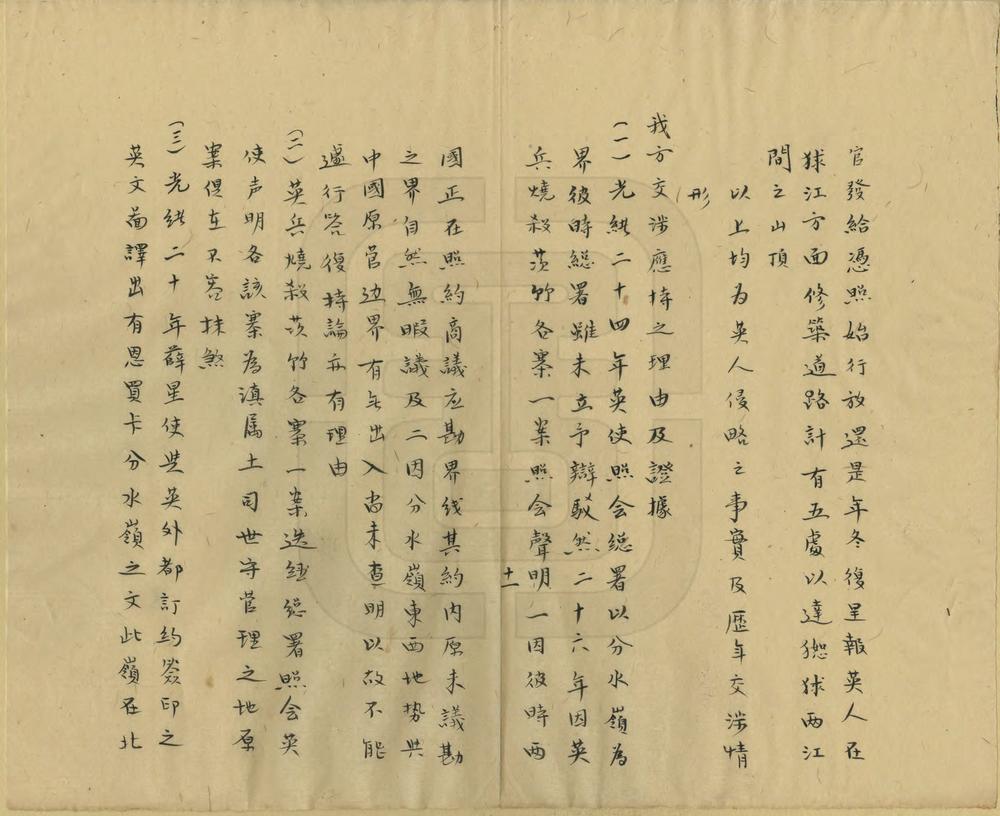 官發給憑照始行放還是年冬復呈報英人在
狱江方面修築道路計有五處以達㺜狱兩江
間之山頂
以上均为英人侵略之事實及歷年交涉情
形
我方交涉應持之理由及證據
(一)光緒二十四年英使照会總署以分水嶺為
界彼時總署雖未立予辯駁然二十六年因英
兵燒殺茨竹各寨一案照会聲明一因彼時兩
十一
國正在照約商議应勘界线其約内原未議勘
之界自然無暇議及二因分水嶺東西地势與
中國原管边界有無出入尚未查明以故不能
遽行答復持論亦有理由
(二)英兵燒殺茨竹各寨一案迭經總署照会英
使声明各該寨為滇属土司世守管理之地原
案俱在不容抹煞
(三)光緒二十年薛星使與英外都訂約簽印之
英文畫譯出有恩買卡分水嶺之文此嶺在北